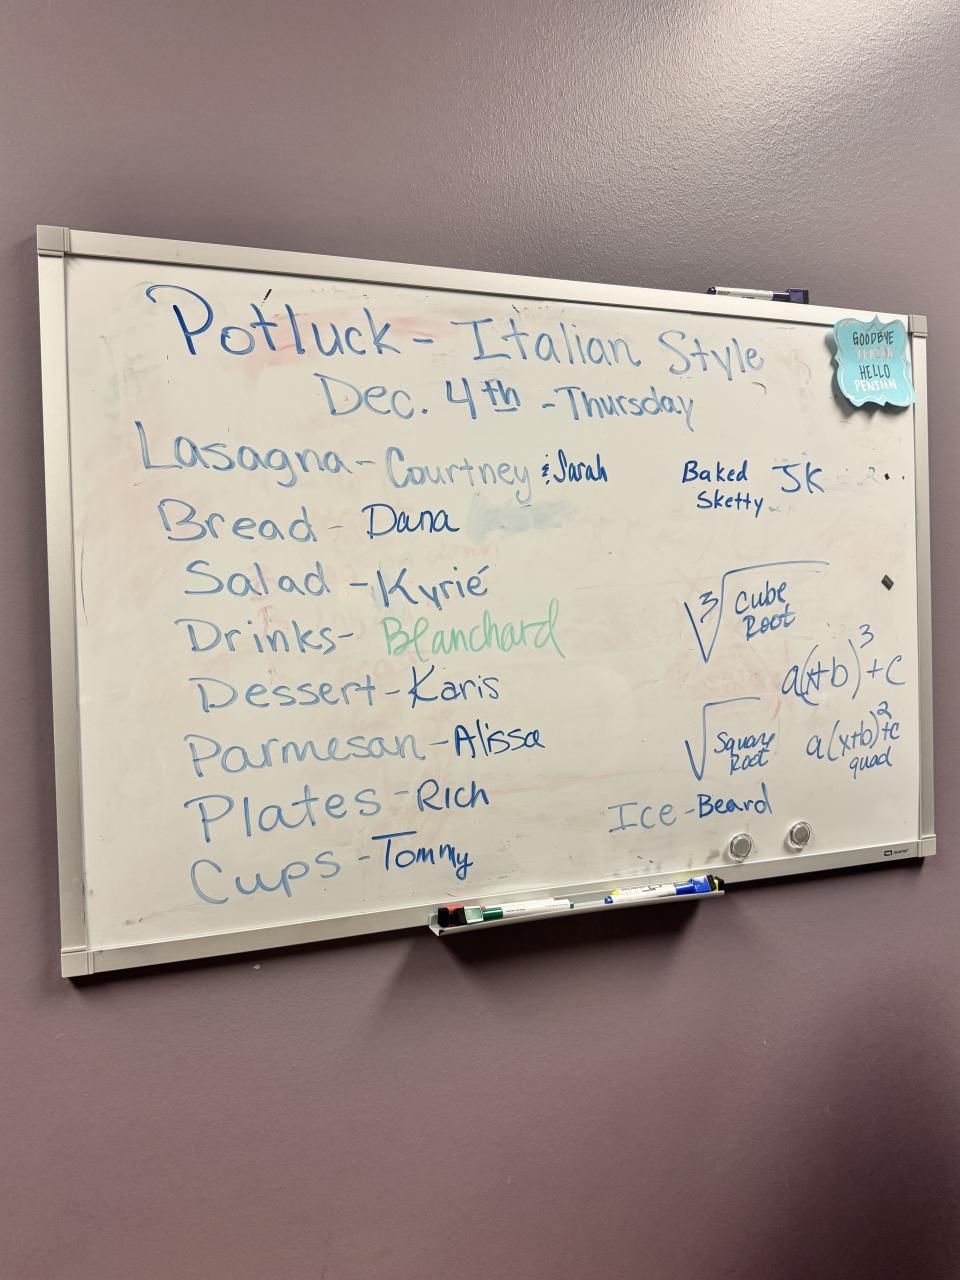 Potluck - Italian Style
Dec. 4th - Thursday
Lasagna - Courtney & Sarah
Bread - Dana
Salad - Kyrié
Drinks - Blanchard
Dessert - Karis
Parmesan - Alissa
Plates - Rich
Cups - Tommy
Baked Sketty JK
3√ Cube Root
a(x+b)³+c
√ Square Root
a(x+b)²+c
quad
Ice - Beard
GOODBYE
TENSION
HELLO
PENSION